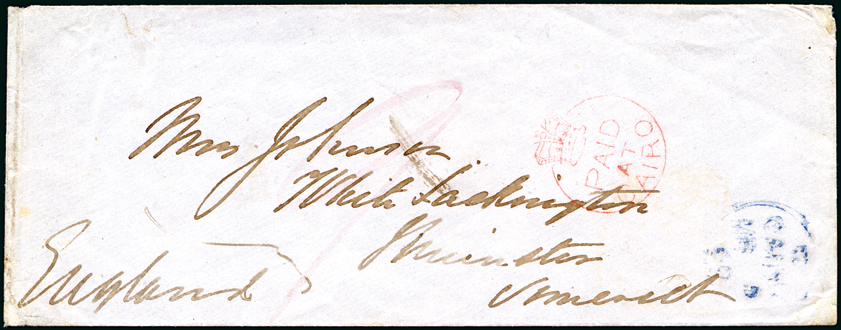 Mrs Johnson
White Lackington
Ilminster
Somerset
England
PAID
AT
CAIRO